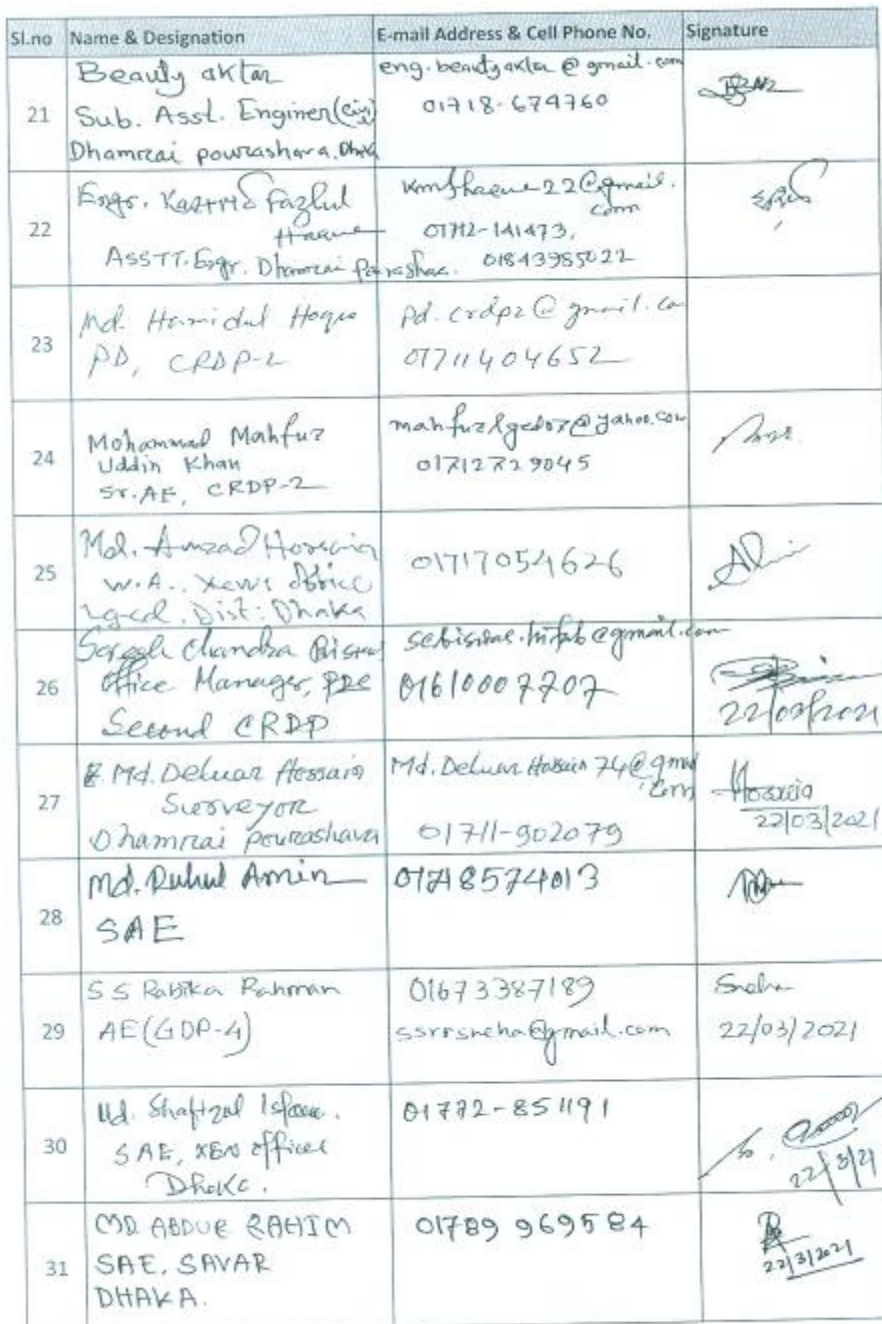 Sl.no Name & Designation E-mail Address & Cell Phone No. Signature
21 Beauty aktar
Sub. Asst. Enginer(Civil)
Dhamrai pourashava, Dhaka
eng.beautyaktar@gmail.com
01718-674760
22 Engr. Fazlul
Haque
ASSTT. Engr. Dhamrai Pourashava.
kmfhaque22@gmail.
com
01712-141473,
01843985022
23 Md. Hamidul Hoque
PD, CRDP-2
pd.crdp2@gmail.co
01711404652
24 Mohammad Mahfuz
Uddin Khan
Sr.AE, CRDP-2
mahfuzlged07@yahoo.com
01712729045
25 Md. Amzad Hossain
W.A., Xen's office
Lged, Dist: Dhaka
01717054626
26 Chandra Biswas
Office Manager,
Second CRDP
scbiswas.hifab@gmail.com
01610007707
22/03/2021
27 Md. Deluar Hossain
Surveyor
Dhamrai pourashava
Md.Deluar Hossain 74@gmail
.com
01711-902079
Hossain
22/03/2021
28 Md. Ruhul Amin
SAE
01718574013
29 S S Rabika Rahman
AE(GDP-4)
01673387189
ssrrsneha@gmail.com
Sneha
22/03/2021
30 Md. Shafizul Islam.
SAE, XEN office
Dhaka.
01772-851191
22/3/21
31 MD ABDUR RAHIM
SAE, SAVAR
DHAKA.
01789 969584
22/3/2021